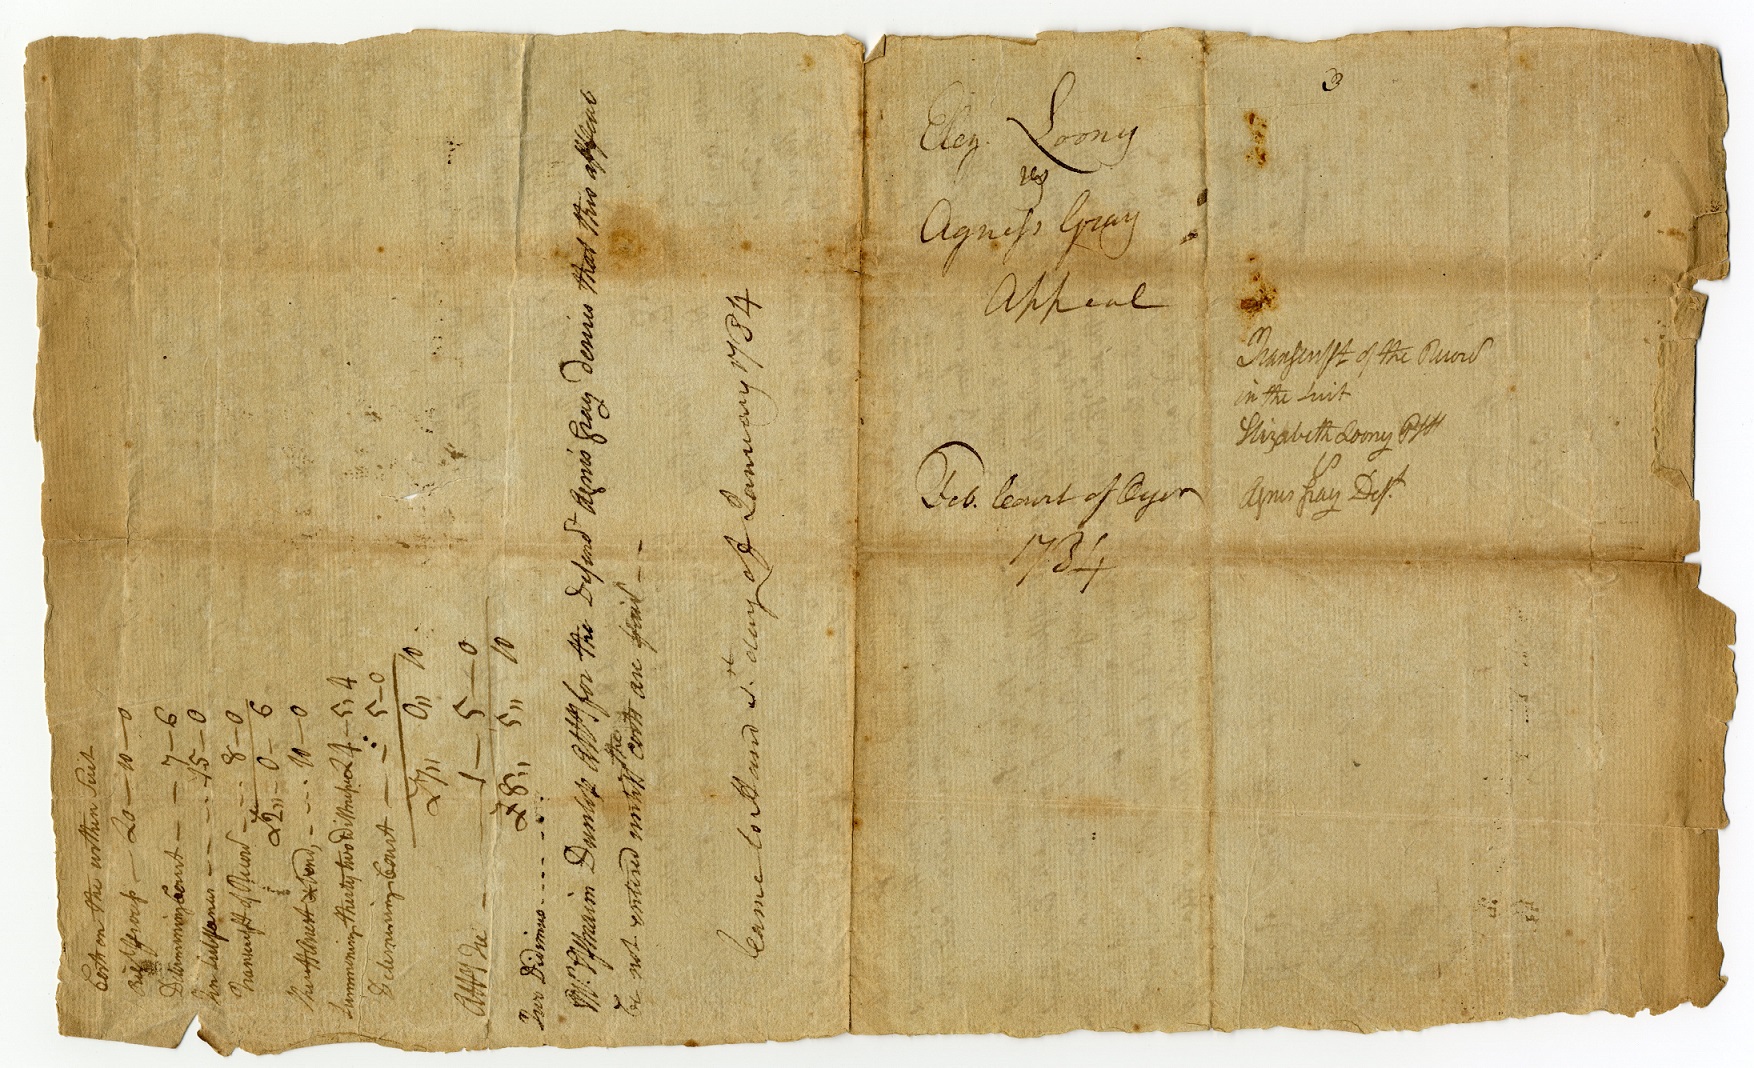 Cost on the within Suit
Process — £0 — 10 — 0
Determining Court — — 7 — 6
Ten Subpenas — — 15 — 0
Transcript of Record — — 8 — 0
£2 " 0 — 6
Sheriff Arrest & Bond, — — 10 — 0
Summoning thirty two Witnesses £4 — 5 " 4
Determining Court — — 5 — 0
£7 " 0 " 10
Atty Fee — 1 — 5 — 0
£8 " 5 " 10
Ephraim Dunlop Atty for the Defendt Agnis Gray Denies that this appeal
be not entered untill the costs are paid — —
Came to Hand 5th day of January 1784
Elez. Loony
vs
Agness Gray
Appeal
Feb. Court of Oyer
1784
3
Transcript of the Record
in the suit
Elizabeth Loony Pltf
v
Agnis Gray Deft